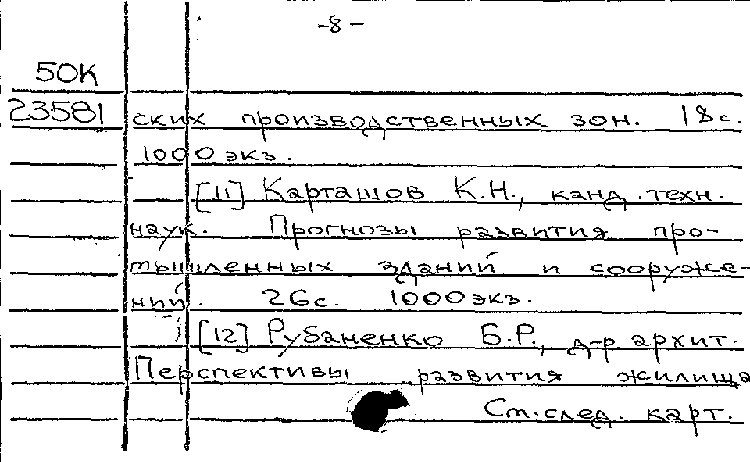 -8-
50К
23581 ских производственных зон. 18с.
1000 экз.
[11] Карташов К.Н., канд. техн.
наук. Прогнозы развития про-
мышленных зданий и сооруже-
ний. 26с. 1000 экз.
[12] Рубаненко Б.Р., д-р архит.
Перспективы развития жилища
См. след. карт.